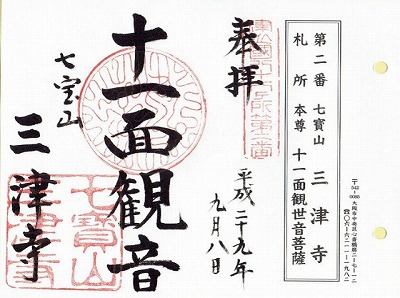 第二番 七寳山 三津寺
札所 本尊 十一面観世音菩薩
〒542-0085 大阪市中央区心斎橋筋二-七-一二
☎〇六-六二一一-一九八二
奉拝
平成二十九年
九月八日
十一面観音
七宝山
三津寺
七寶山